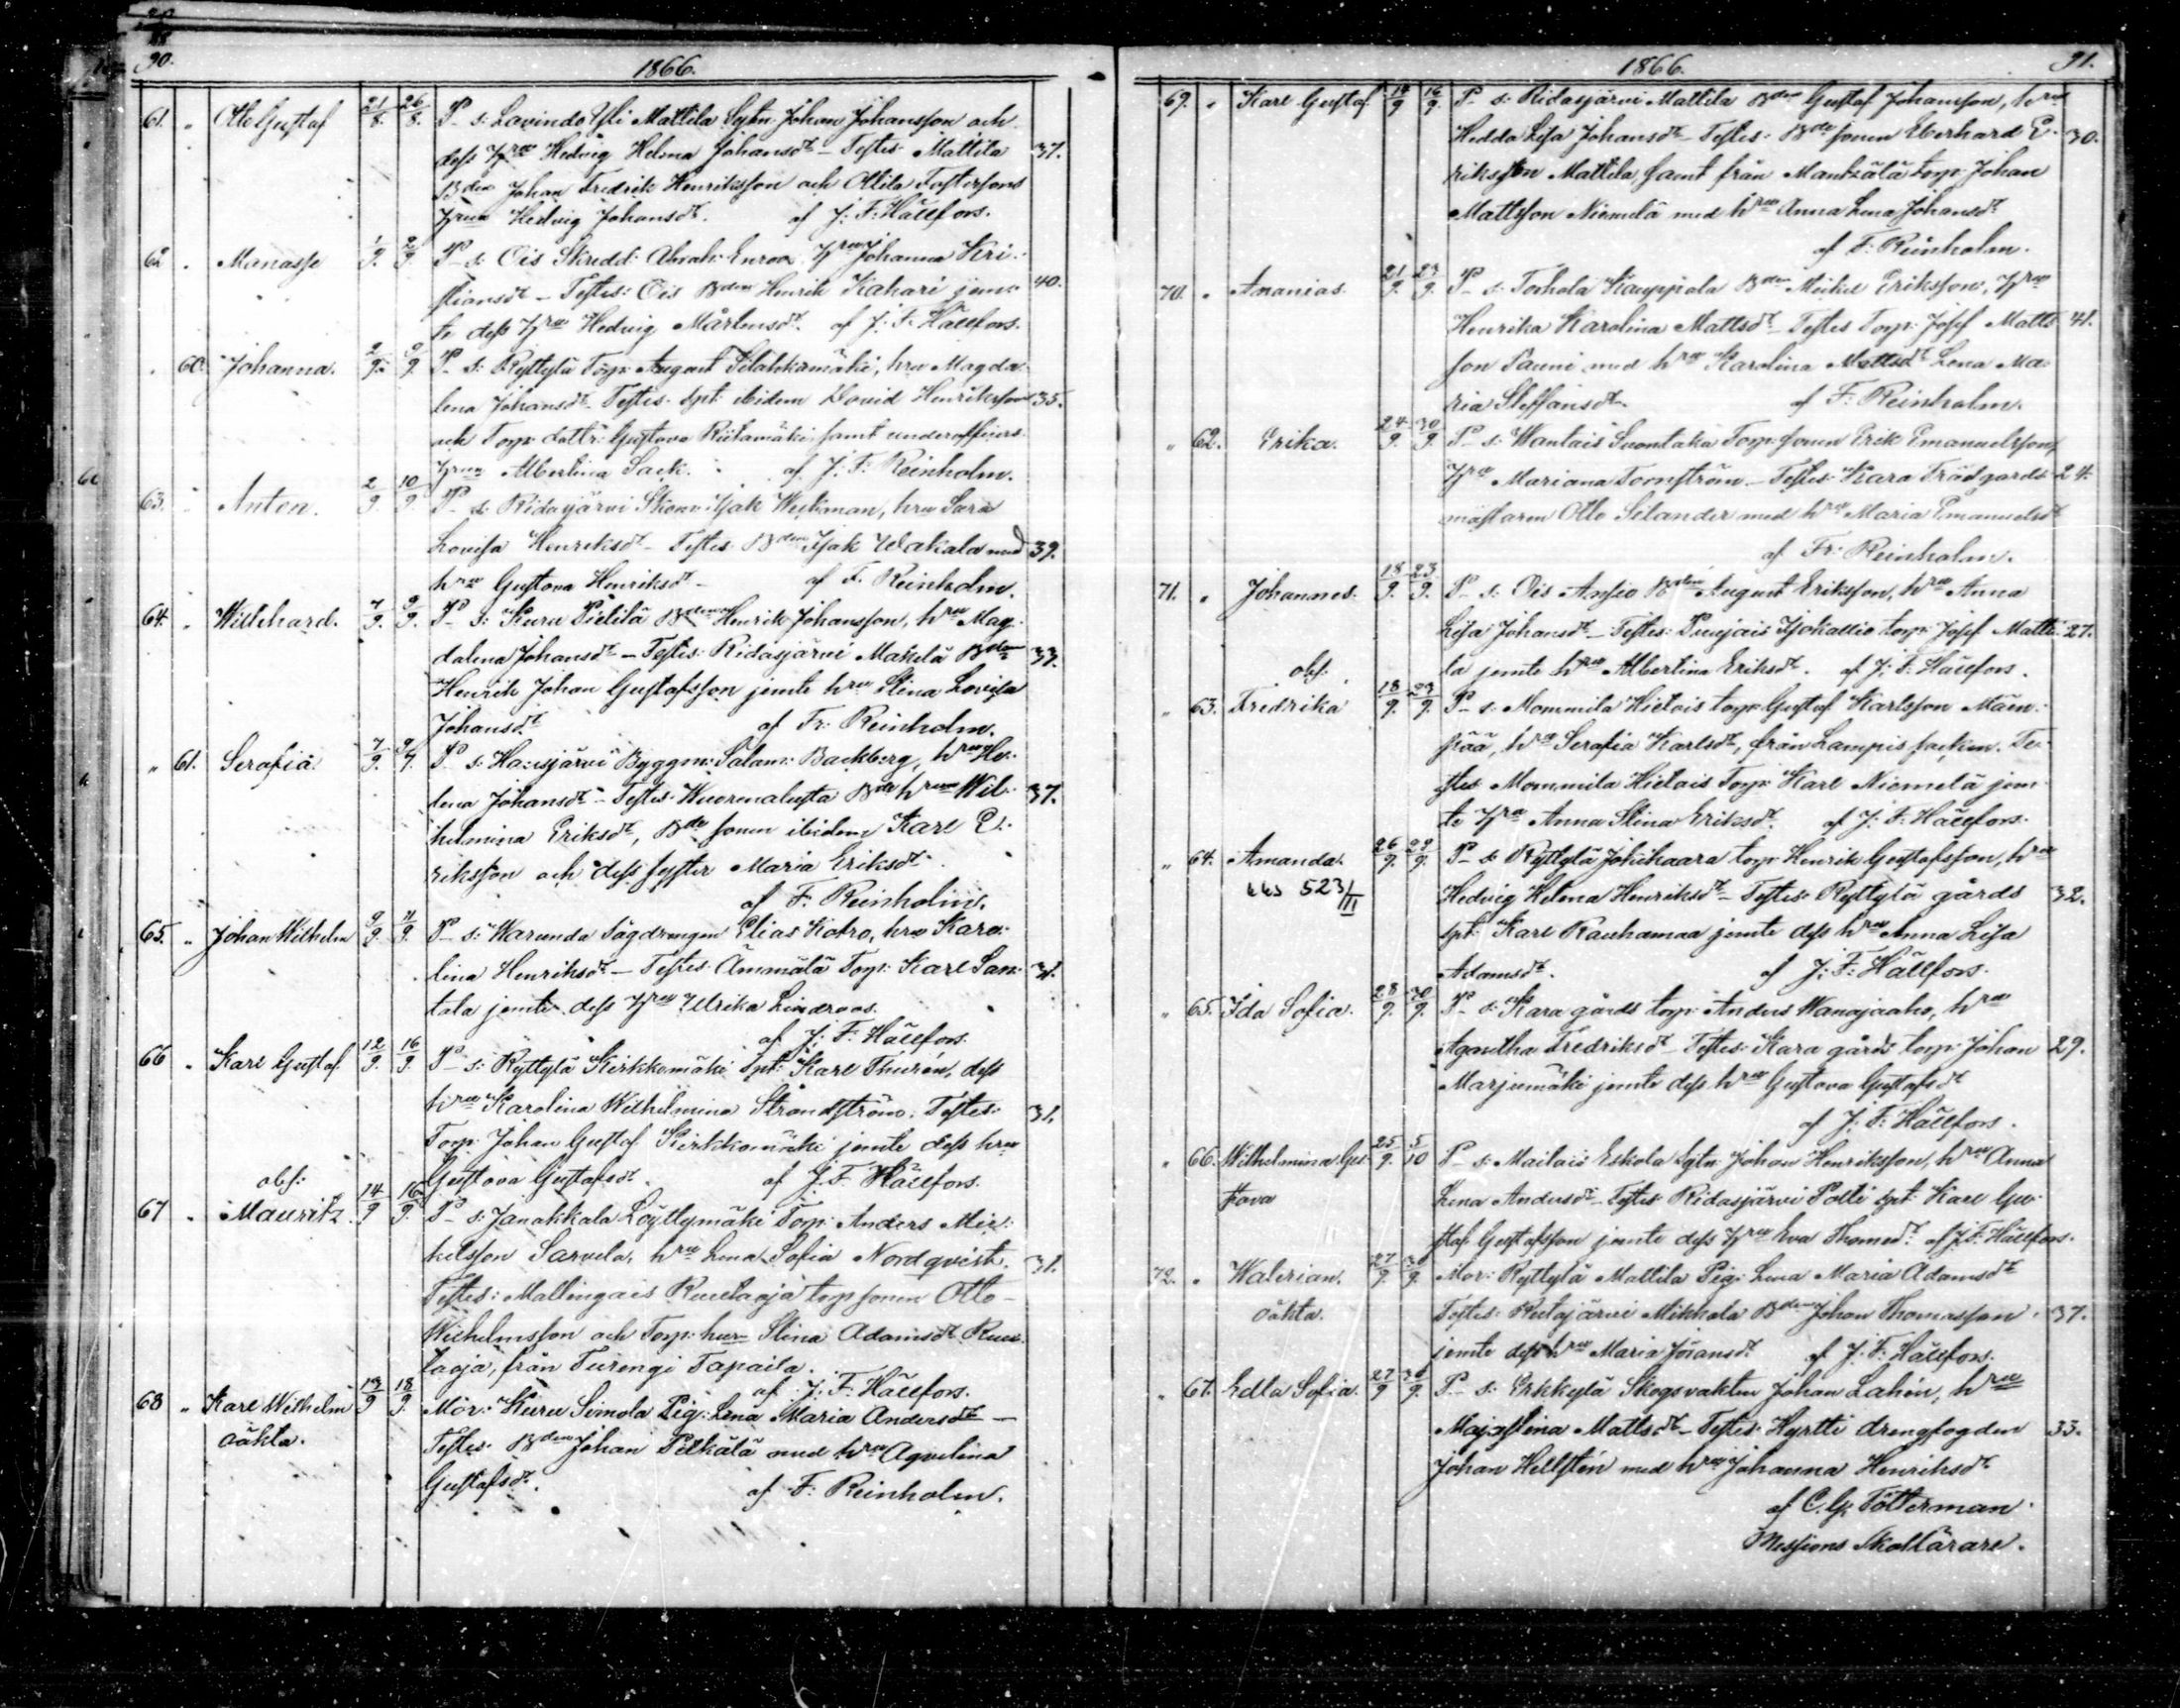 90. 1866.
61. " Otto Gustaf 21/8. 26/8. P_ s: Lavinda Yli Mattila Sytn: Johan Johansson och
dess Hru Hedvig Helma Johansdt – Testes: Mattila 37.
Bden Johan Fredrik Henriksson och Ottila
Hrun Hedvig Johansdt. af J: F: Hällfors.
62 " Manasse 1/9. 2/9. P_ s: Ois Skredd: Abrah: Enroos Hru Johanna Kri-
stiansdt – Testes: Ois Bden Henrik Kahari jem- 40.
te dess Hru Hedvig Mårtensdt. af J: F: Hällfors.
" 60. Johanna. 2/9. 9/9. P_ s: Ryttylä Torp: August, hru Magda
lena Johansdt – Testes: Spt: ibidem David Henriksson 35.
och Torp: dottr: Gustava Riitamäki samt underofficers
Hrun Albertina Sack. af J: F: Reinholm.
63. " Anton. 2/9. 10/9. P_ s: Ridasjärvi Skomr: Isak Westman, hru Sara
Lovisa Henriksdt – Testes: Bden Isak Wakala med 39.
hru Gustava Henriksdt – af F. Reinholm.
64. " Willehard. 7/9. 9/9. P_ s: Kuru Pietilä Bden Henrik Johansson, hru Mag-
dalena Johansdt – Testes: Ridasjärvi Mäkelä Bden 33.
Henrik Johan Gustafsson jemte hru Stina Lovisa
Johansdt. af Fr: Reinholm.
" 61. Serafia. 7/9. 9/9. P_ s: Hausjärvi Byggm: Salam: Backberg, hru He-
lena Johansdt – Testes: Wuorenalusta Bde hrun Wil- 37.
helmina Eriksdt, Bde sonen ibidem Karl E-
riksson och dess syster Maria Eriksdt.
af F. Reinholm.
65. " Johan Wilhelm 9/9. 11/9. P_ s: Warunda Sågdrengen Elias Kokro, hru Karo-
lina Henriksdt – Testes: Ämmälä Torp: Karl San-
tala jemte dess Hru Ulrika Lindroos.
af J: F: Hällfors.
66 " Karl Gustaf 12/9. 16/9. P_ s: Ryttylä Kirkkomäki Spt: Karl Thurén, dess
hru Karolina Wilhelmina Strandström. Testes: 31.
Torp: Johan Gustaf Kirkkomäki jemte dess hru
Gustava Gustafsdt. af J: F: Hällfors.
obs:
67 " Mauritz. 14/9 16/9. P_ s: Janakkala Löyttymäki Torp: Anders Mic-
kelsson Sarvela, hru Lena Sofia Nordqvist. 31.
Testes: Mallingais Ruutaoja torp sonen Otto
Wilhelmsson och Torp: hrun Stina Adamsdt Ruu-
taoja, från Turengi Tapaila.
af J: F: Hällfors.
68 " Karl Wilhelm 13/9 18/9. Mor: Kuru Simola Pig: Lena Maria Andersdt –
oäkta. Testes: Bden Johan Pelkälä med hru Agvelina
Gustafsdt. af F: Reinholm.
1866. 91.
69. " Karl Gustaf 14/9 16/9. P_ s: Ridasjärvi Mattila Bden Gustaf Johansson, hru
Hedda Lisa Johansdt – Testes: Bde sonen Eberhard E- 30.
riksson Mattila, samt från Mantzälä torp: Johan
Mattsson Niemelä med hru Anna Lena Johansdt
af F: Reinholm.
70. " Ananias. 21/9. 23/9. P_ s: Torhola Kauppiala Bden Mickel Eriksson, Hru
Henrika Karolina Mattsdt – Testes Torp: Josef Matts 41.
son Pauni med hru Karolina Mattsdt Lena Ma-
ria Steffansdt. af F: Reinholm.
" 62. Erika. 24/9. 30/9. P_ s: Wantais Suontaka Torp: sonen Erik Emanuelsson,
Hru Mariana Tornström – Testes: Kara Trädgårds 24.
mästaren Otto Selander med hru Maria Emanuelsdt
af Fr: Reinholm.
71. " Johannes. 18/9. 23/9. P_ s: Ois Ansio Bden August Eriksson, hru Anna
Lisa Johansdt – Testes: Puujais Isokallio torp: Josef Matti- 27.
obs: la jemte hru Albertina Eriksdt. af J: F: Hällfors.
" 63. Fredrika 18/9. 23/9. P_ s: Mommila Hietois torp: Gustaf Karlsson Mäen-
pää, hru Serafia Karlsdt, från Lampis socken. Te-
stes Mommila Hietois Torp: Karl Niemelä jem-
te Hru Anna Stina Eriksdt. af J: F: Hällfors.
" 64. Amanda. 26/9. 29/9. P_ s: Ryttylä Jokihaara torp: Henrik Gustafsson, hru
523/II Hedvig Helena Henriksdt – Testes: Ryttylä gårds 32.
Spt: Karl Rauhamaa jemte dess hru Anna Lisa
Adamsdt. af J: F: Hällfors.
" 65. Ida Sofia. 28/9. 30/9. P_ s: Kara gårds torp: Anders Wanajaaho, hru
Agantha Fredriksdt – Testes: Kara gårds torp: Johan 29.
Marjumäki jemte dess hru Gustava Gustafsdt
af J: F: Hällfors.
" 66. Wilhelmina Gus- 25/9. 5/10 P_ s: Mailais Eskola Sytn: Johan Henriksson, hru Anna
tava Lena Andersdt – Testes: Ridasjärvi Polti spt: Karl Gu-
staf Gustafsson jemte dess Hru Eva Thomasdt. af J: F: Hällfors.
72. " Walerian. 27/9. 30/9. Mor: Ryttylä Mattila Pig: Lena Maria Adamsdt
oäkta. Testes: Mikkola Bden Johan Thomasson 37.
jemte dess hru Maria Johansdt. af J: F: Hällfors.
" 67. Edla Sofia. 27/9 30/9. P_ s: Erkkylä Skogsvakten Johan Lahén, hru
Majastina Mattsdt – Testes: Hyrtti drengfogden 33.
Johan Hellstén med hru Johanna Henriksdt
af C. G. Tötterman
Missions Skollärare.